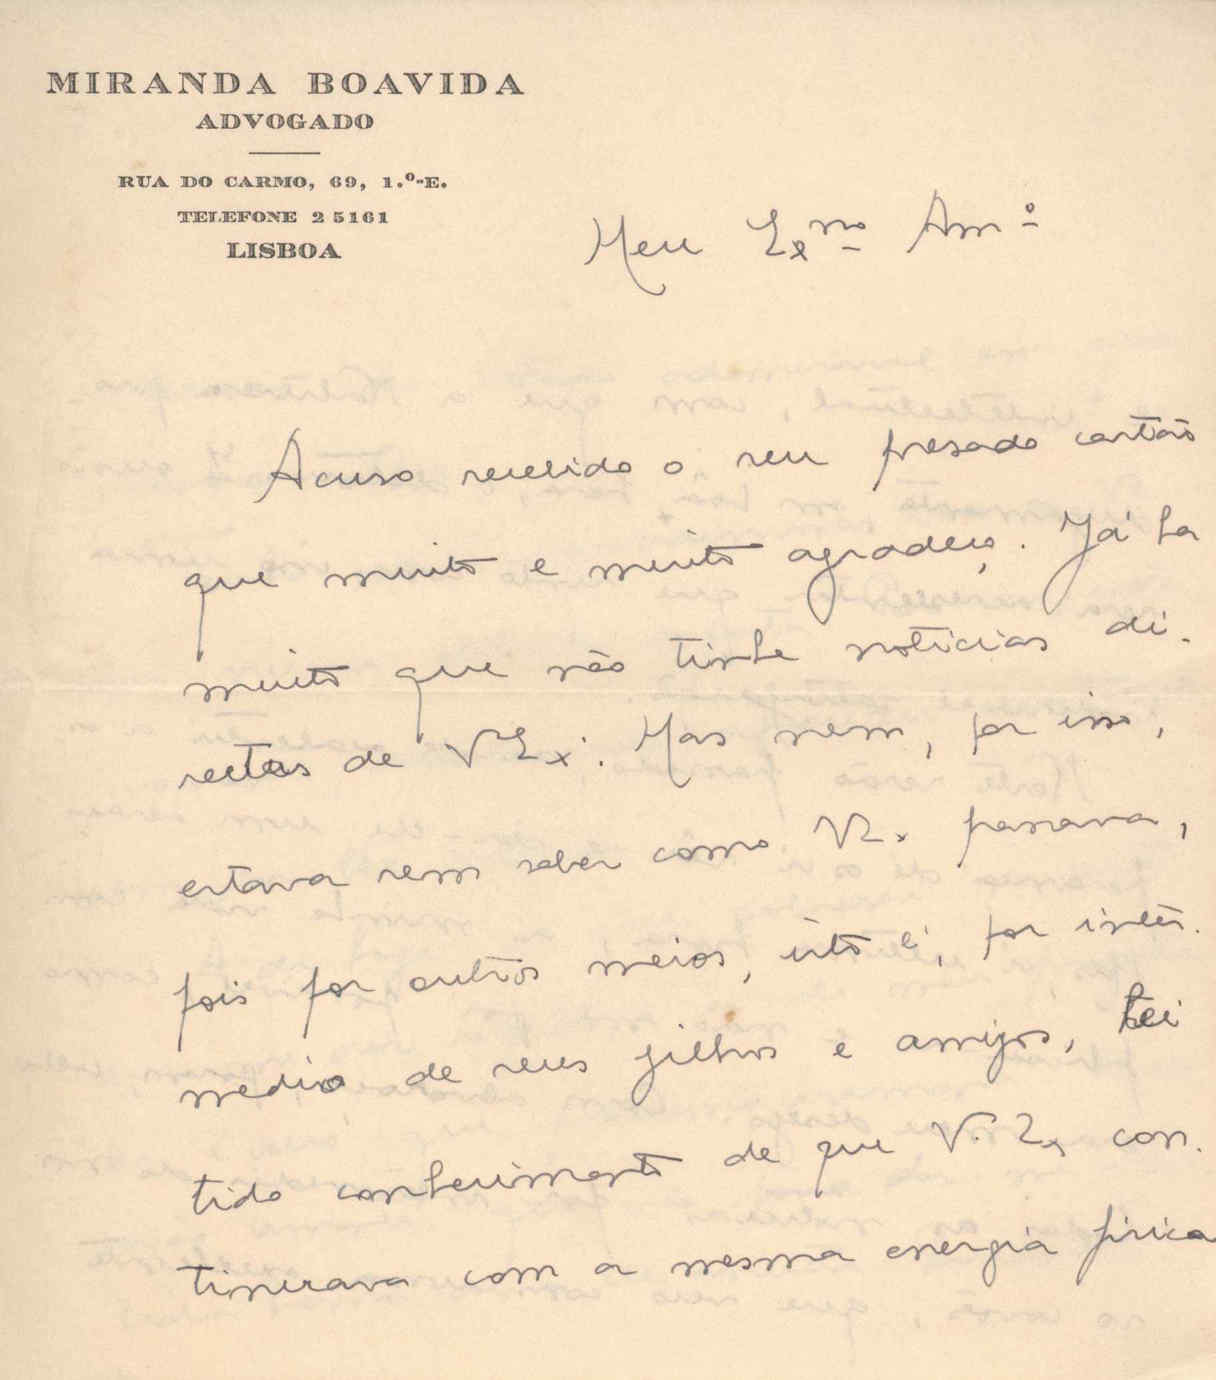 MIRANDA BOAVIDA
ADVOGADO
RUA DO CARMO, 69, 1.º-E.
TELEFONE 25161
LISBOA
Meu Exmo Amº
Acuso recebido o seu presado cartão
que muito e muito agradeço. Já ha
muito que não tinha noticias di-
rectas de V. Ex. Mas nem, por isso,
estava sem saber como V. Ex. passava,
pois por outros meios, isto é, por inter-
medio de seus filhos e amigos, hei
tido conhecimento de que V. Ex. con-
tinuava com a mesma energia fisica